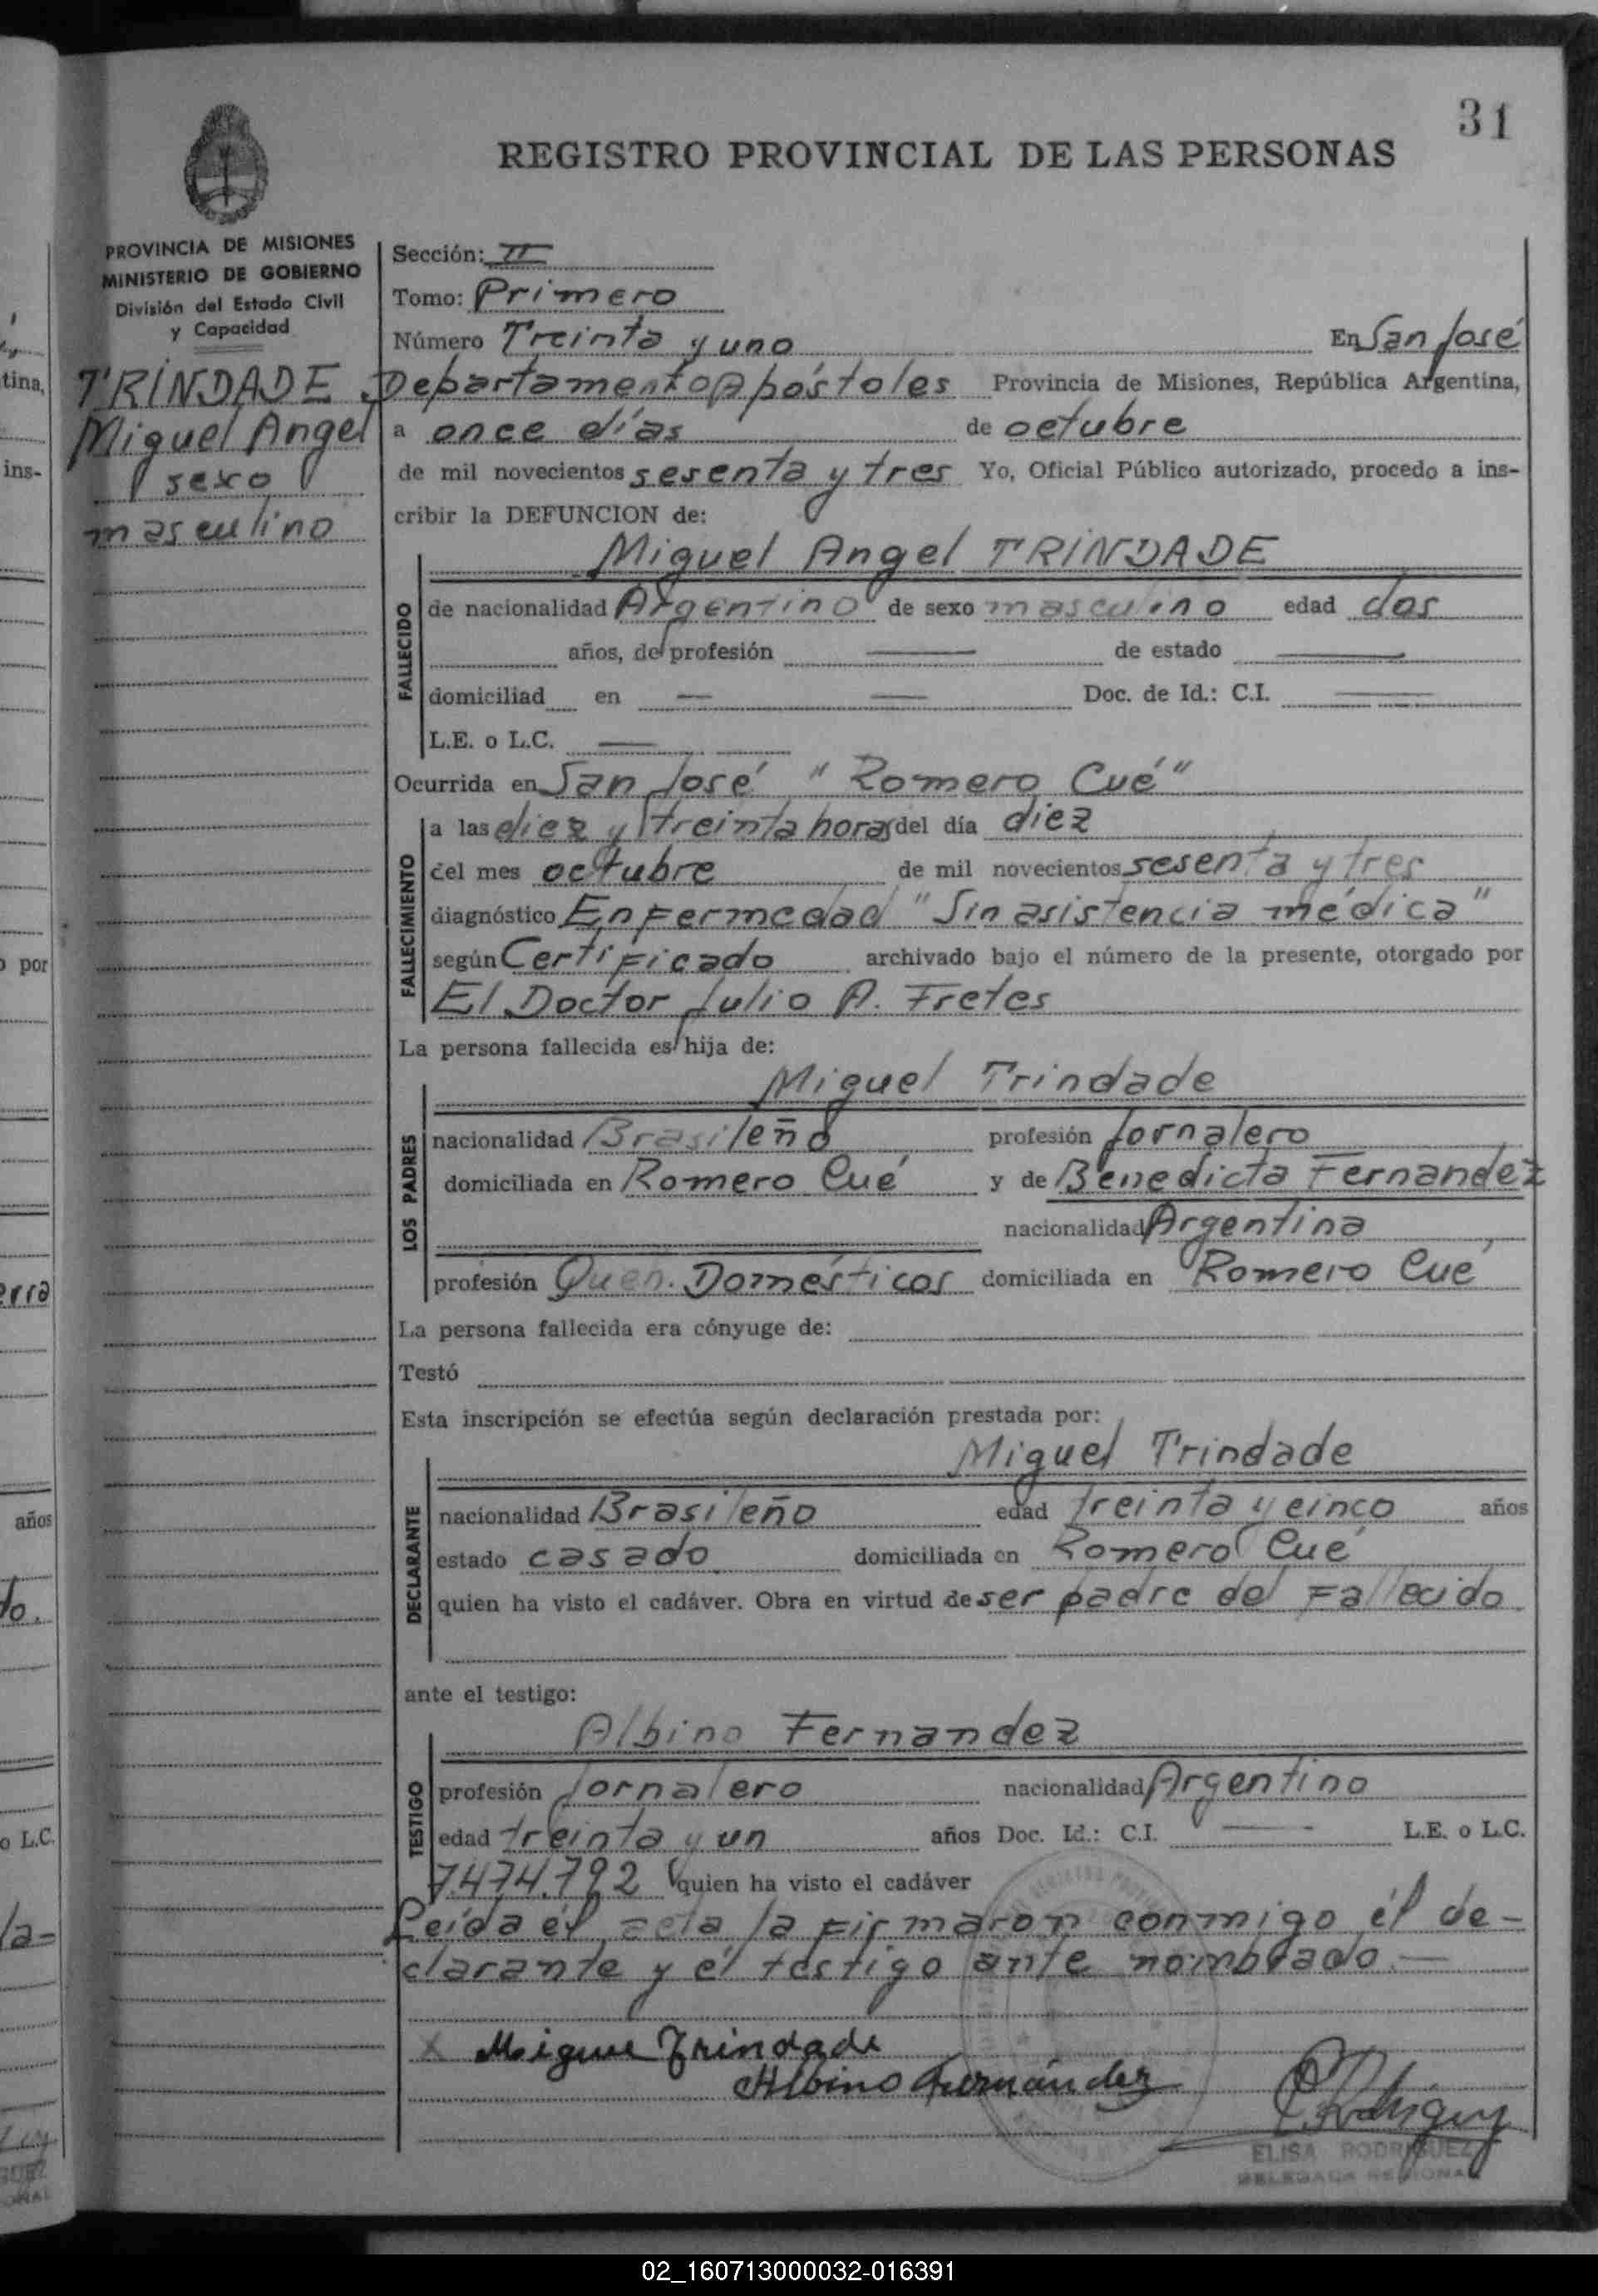 31
REGISTRO PROVINCIAL DE LAS PERSONAS
PROVINCIA DE MISIONES
MINISTERIO DE GOBIERNO
División del Estado Civil
y Capacidad
TRINDADE
Miguel Angel
sexo
masculino
Sección: II
Tomo: Primero
Número Treinta y uno En San José
Departamento Appóstoles Provincia de Misiones, República Argentina,
a once días de octubre
de mil novecientos sesenta y tres Yo, Oficial Público autorizado, procedo a ins-
cribir la DEFUNCION de:
Miguel Angel TRINDADE
FALLECIDO
de nacionalidad Argentino de sexo masculino edad dos
años, de profesión — de estado —
domiciliad en — — Doc. de Id.: C.I. —
L.E. o L.C. —
Ocurrida en San José "Romero Cué"
FALLECIMIENTO
a las diez y treinta horas del día diez
del mes octubre de mil novecientos sesenta y tres
diagnóstico Enfermedad "Sin asistencia médica"
según Certificado archivado bajo el número de la presente, otorgado por
El Doctor Julio A. Fretes
La persona fallecida es hija de:
Miguel Trindade
LOS PADRES
nacionalidad Brasileño profesión Jornalero
domiciliada en Romero Cué y de Benedicta Fernandez
nacionalidad Argentina
profesión Queh. Domésticos domiciliada en Romero Cué
La persona fallecida era cónyuge de:
Testó
Esta inscripción se efectúa según declaración prestada por:
Miguel Trindade
DECLARANTE
nacionalidad Brasileño edad treinta y cinco años
estado casado domiciliada en Romero Cué
quien ha visto el cadáver. Obra en virtud de ser padre del Fallecido
ante el testigo:
Albino Fernandez
TESTIGO
profesión Jornalero nacionalidad Argentino
edad treinta y un años Doc. Id.: C.I. — L.E. o L.C.
7.474.792 quien ha visto el cadáver
Leída él acta la firmaron conmigo él de-
clarante y él testigo ante nombrado. —
X Migue Trindade
Albino Fernández
ELISA RODRIGUEZ
DELEGADA REGIONAL
tina,
ins-
por
erra
años
do.
o L.C.
la-
02_160713000032-016391